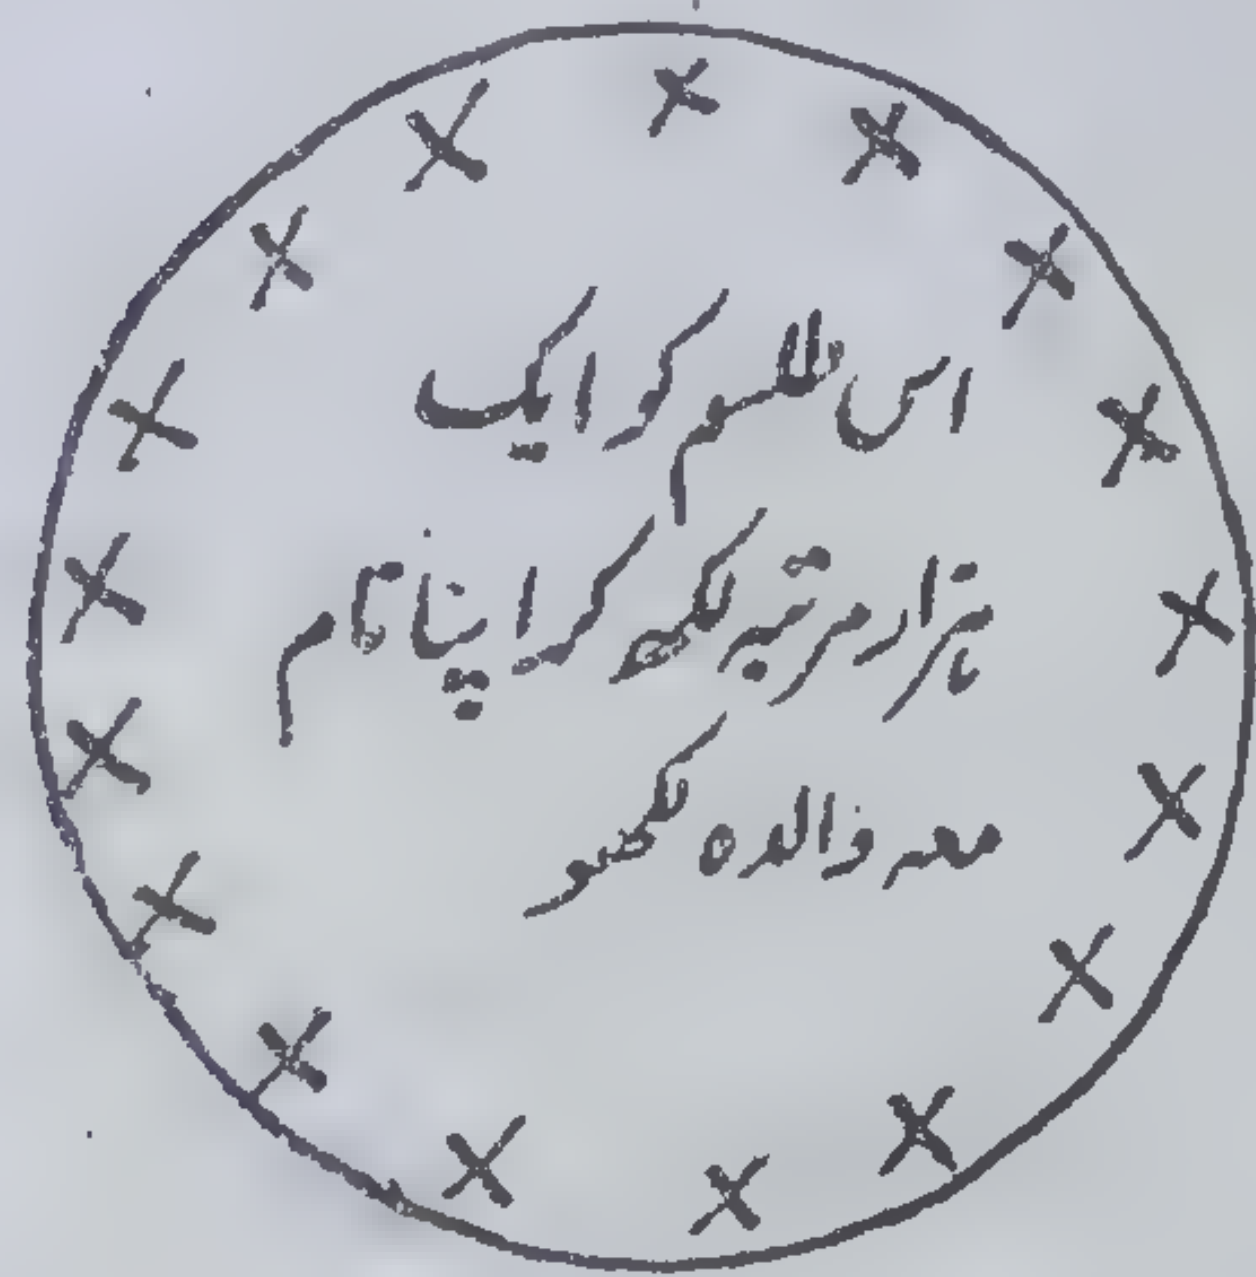 اس طلسم کو ایک
ہزار مرتبہ لکھ کر اپنا نام
معہ والدہ لکھو